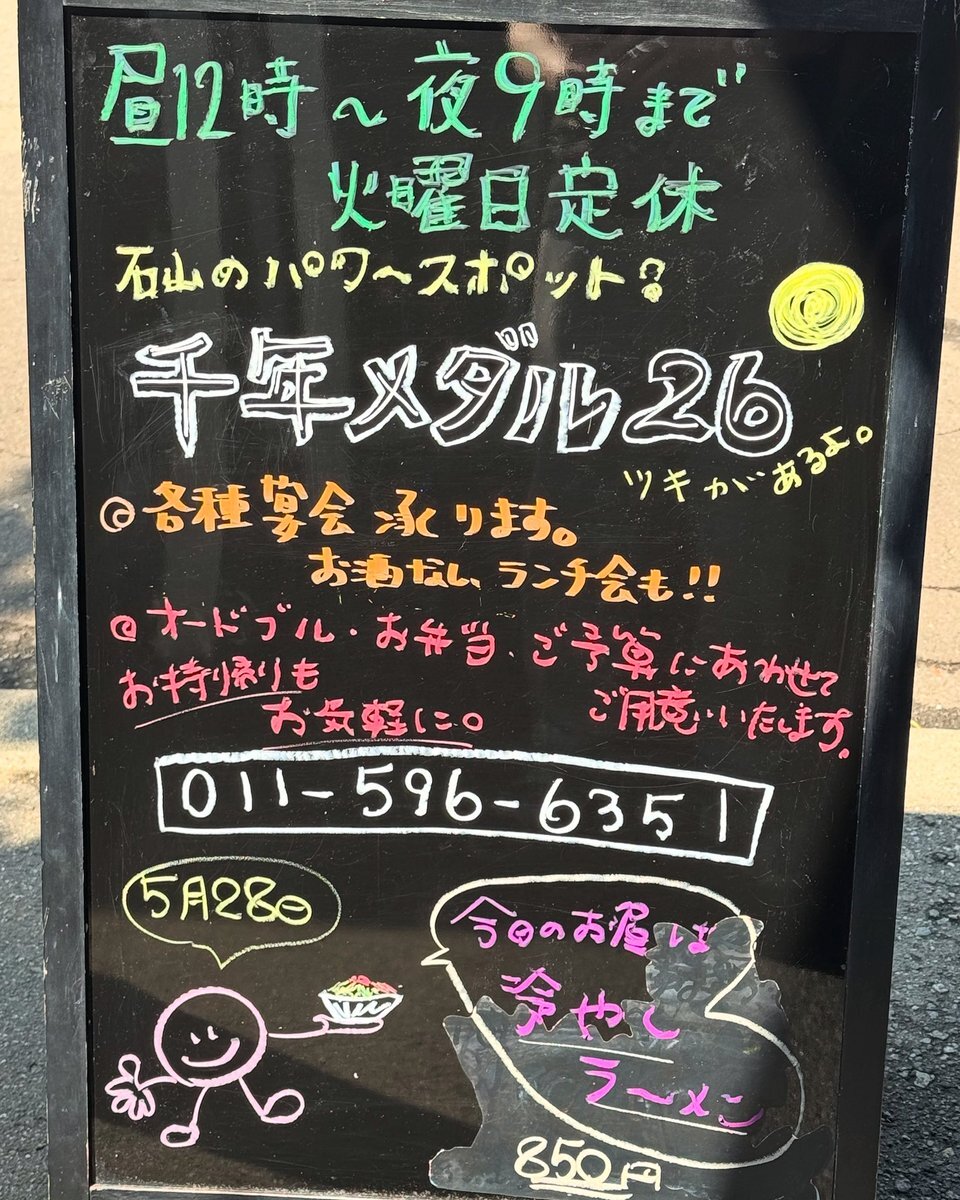 昼12時〜夜9時まで
火曜日定休
石山のパワースポット!
千年メダル26
ツキがあるよ。
◎各種宴会承ります。
お酒なし、ランチ会も!!
◎オードブル・お弁当、ご予算にあわせて
ご用意いたします。
お持ち帰りも
お気軽に。
011-596-6351
5月28日
今日のお昼は
冷やし
ラーメン
850円